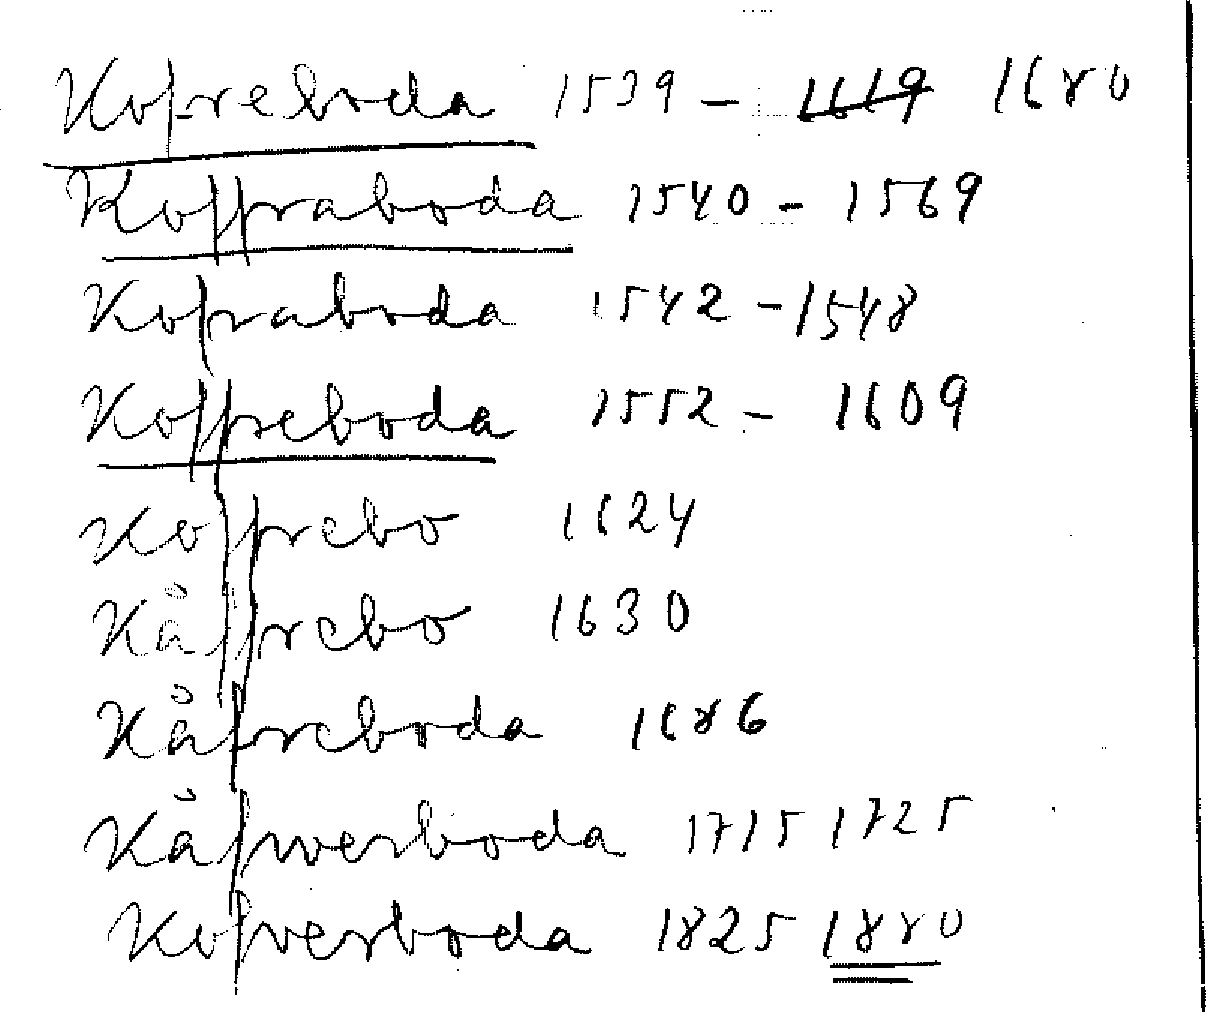 Kofreboda 1539 – 1619 1680
Koffraboda 1540 – 1569
Kofraboda 1542 – 1548
Koffreboda 1552 – 1609
Koffrebo 1624
Kåffrebo 1630
Kåfreboda 1686
Kåfwerboda 1715 1725
Kofverboda 1825 1880